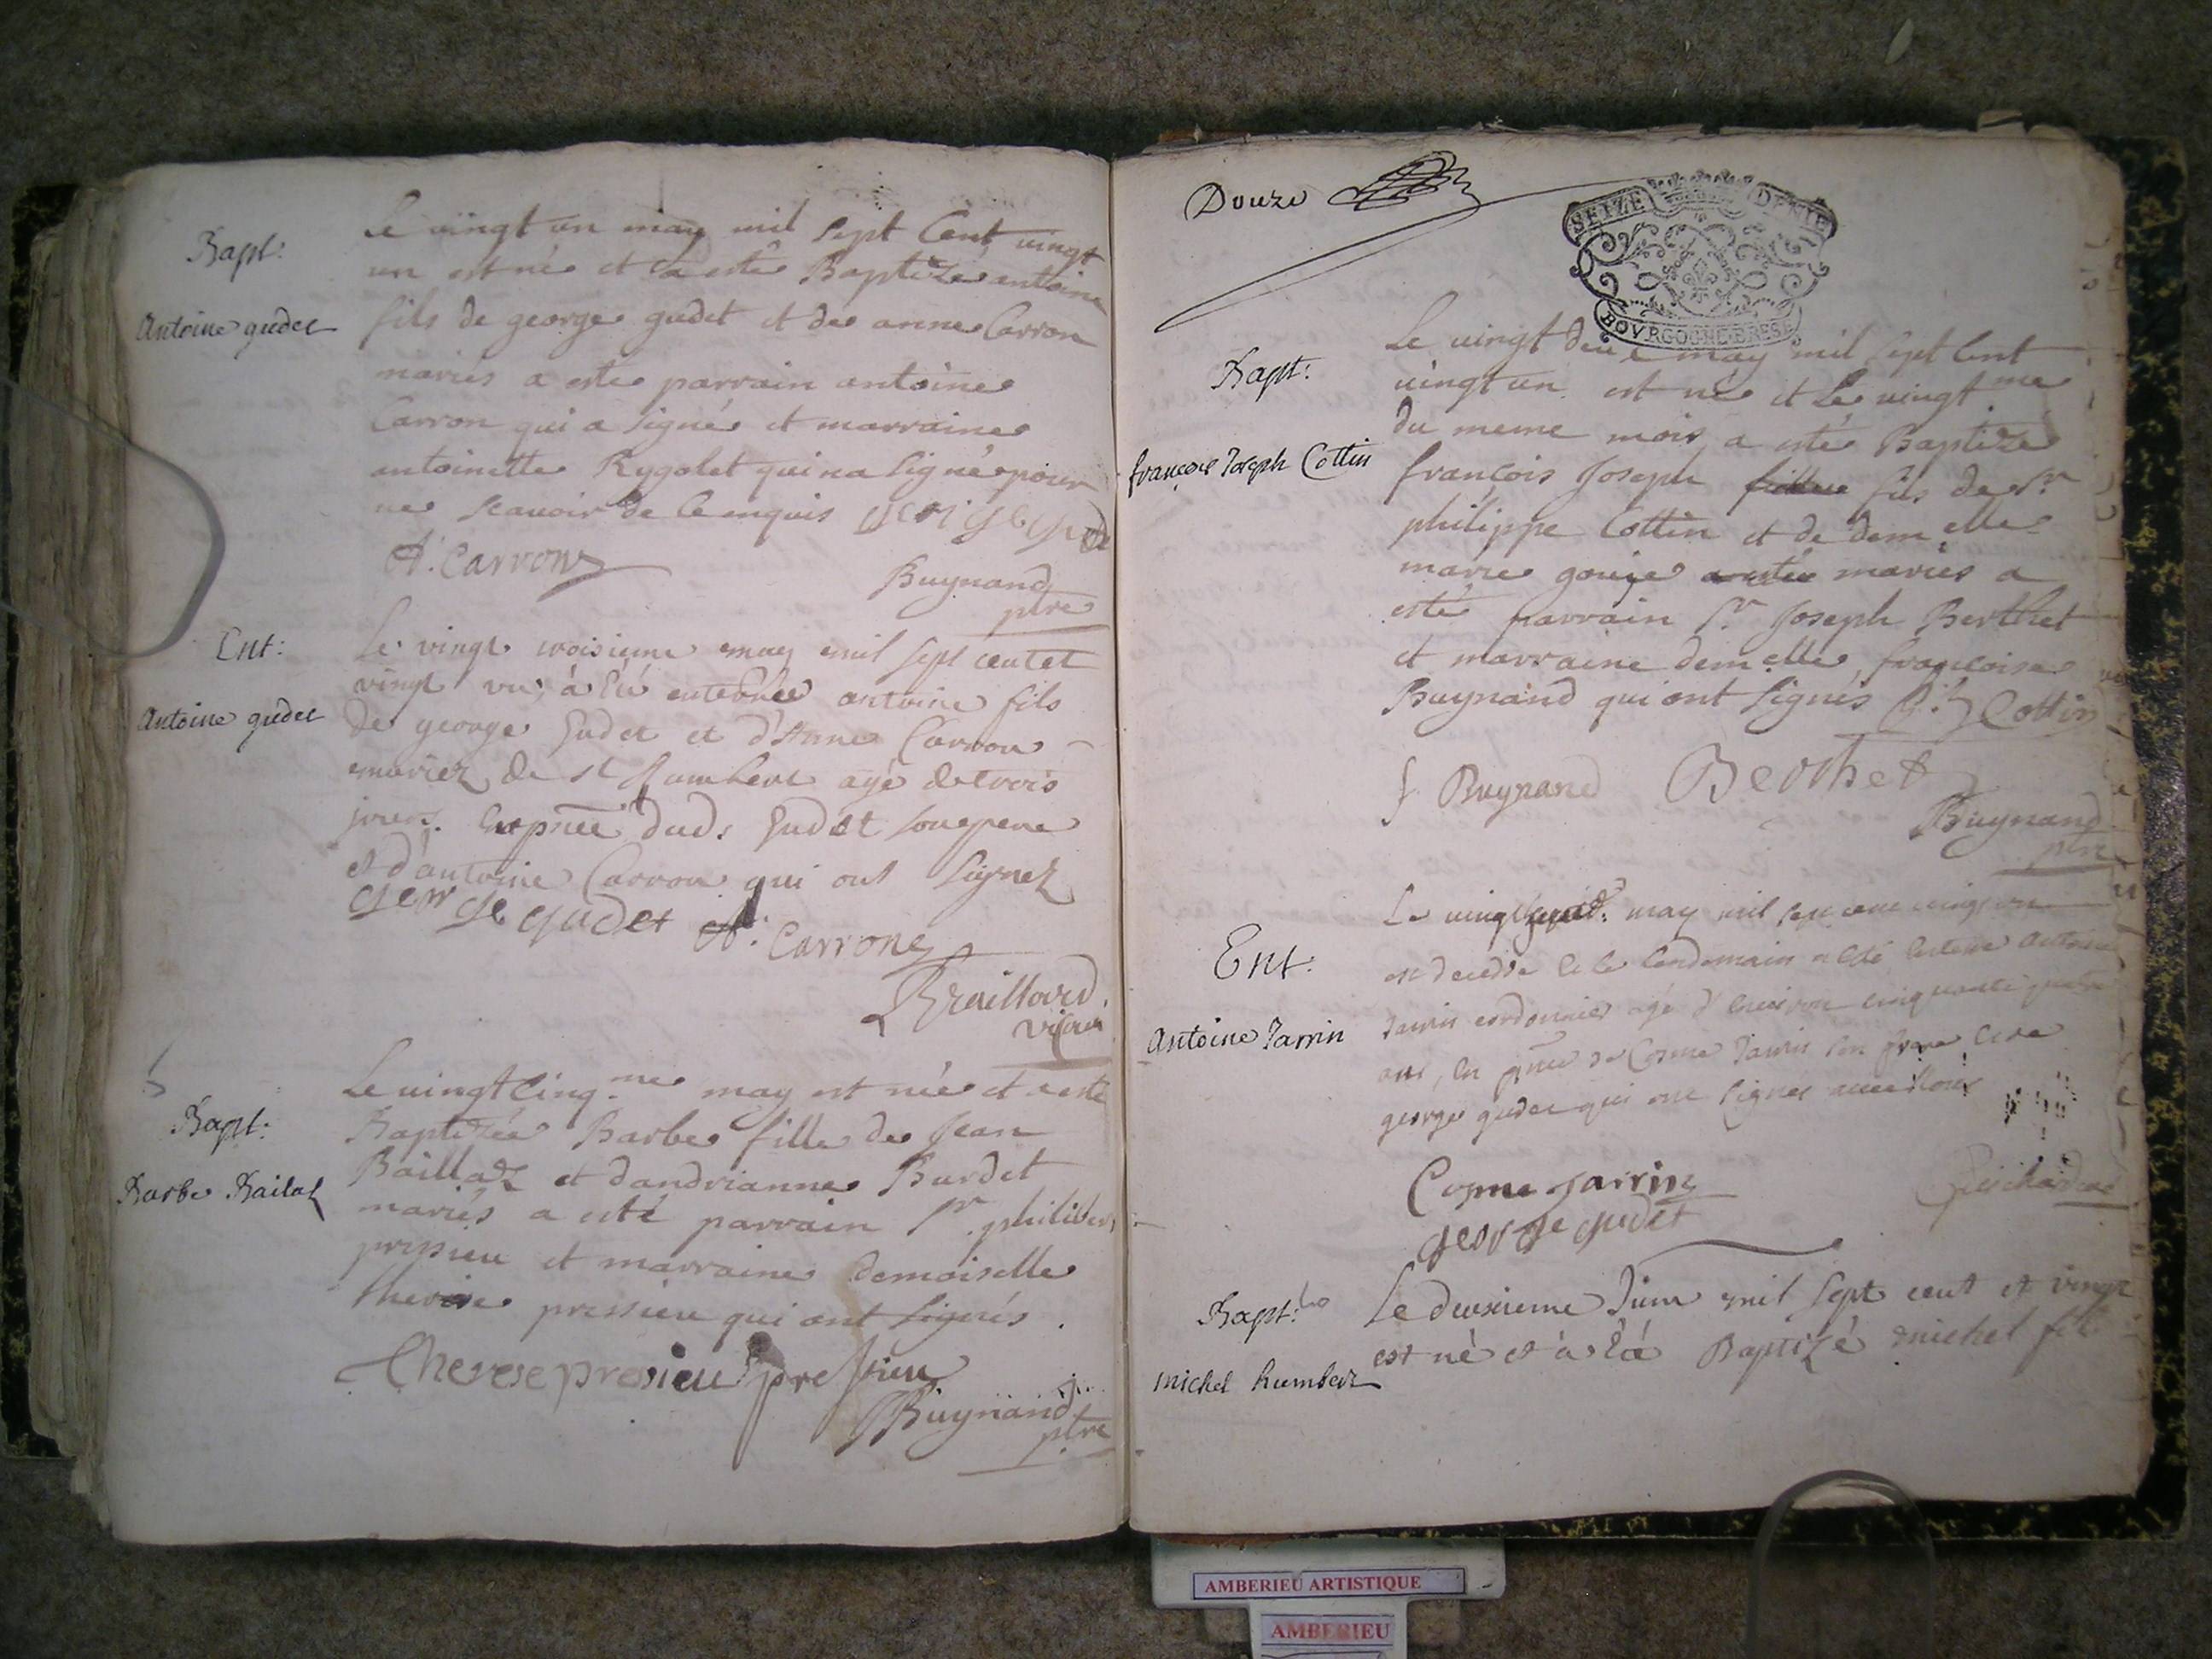 Bapt:
Antoine gudet
Le vingt un may mil sept Cent vingt
un est né et a esté Baptizé antoine
fils de george gudet et de anne Carron
mariés a esté parrain antoine
Carron qui a signé et marraine
antoinette Rygolet qui na signé pour
ne scauoir de ce enquis george gudet
A. Carron
Buynand
ptre
Ent:
Antoine gudet
Le vingt troisieme may mil sept cent et
vingt un, à été enterré antoine fils
de george Gudet et d'Anne Carron
mariez de st Rambert agé de trois
jours. En pnce dud. Gudet son pere
et d'antoine Carron qui ont signez
george gudet A. Carron
Braillard
vicaire
Bapt:
Barbe Bailat
Le vingt cinq.me may est née et a esté
Baptizée Barbe fille de Jean
Baillat et dandrianne Burdet
mariés a esté parrain Sr. philibert
pressieu et marraine demoiselle
therese pressieu qui ont signés.
Therese presieu pressieu
Buynand
ptre
Douze
SEIZE DENIE
BOVRGOGNE BRESE
Bapt:
françois Joseph Cottin
Le vingt deux may mil sept Cent
vingt un est né et le vingt me
du meme mois a esté Baptizé
françois Joseph fils de Sr
philippe Cottin et de dem.elle
marie gouje mariés a
esté parrain Sr. Joseph Berthet
et marraine dem.elle françoise
Buynand qui ont signés Cottin
f. Buynand Berthet
Buynand
ptre
Ent:
Antoine Jarrin
Le vingt may mil sept cent vingt un
est decedé et le lendemain a esté enterré Antoine
Jarrin cordonnier agé d'environ cinquante quatre
ans, en pnce de Cosme Jarrin son frere et de
george gudet qui ont signés avec nous
Cosme Jarrin
george gudet
Bapt:
michel humbert
Le deuxieme Juin mil sept cent et vingt
est né et à été Baptizé michel fils
AMBERIEU ARTISTIQUE
AMBERIEU